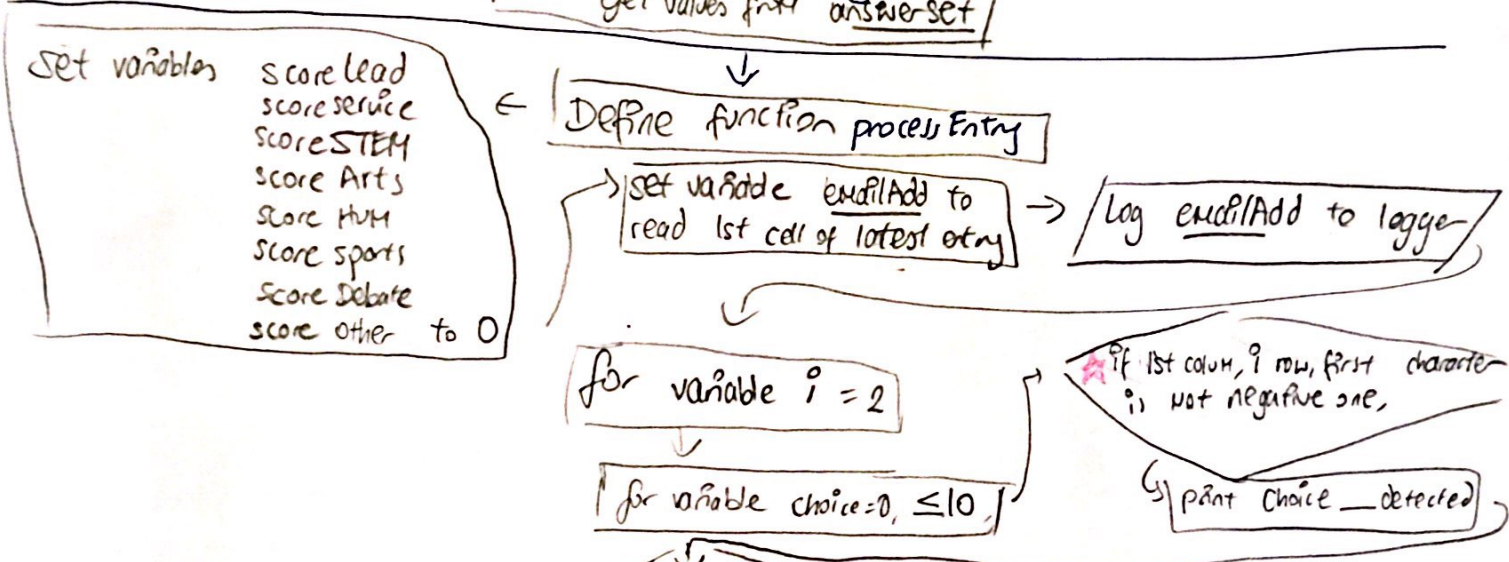 get values from answerset
Define function processEntry
set variables scorelead
scoreservice
scoreSTEM
score Arts
score HUM
score sports
score Debate
score other to 0
set variable emailAdd to
read 1st cell of latest etry
Log emailAdd to logger
for variable i = 2
for variable choice=0, ≤10,
if 1st colum, i row, first character
is not negative one,
print Choice __ detected